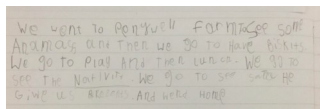 We went to Ponywell farm to See Som
Anama's and then we go to Have Bickits
We go to Play And then Lunch. We go to
see the Nativite. We go to see Sater He
Give us Presens. And were Home